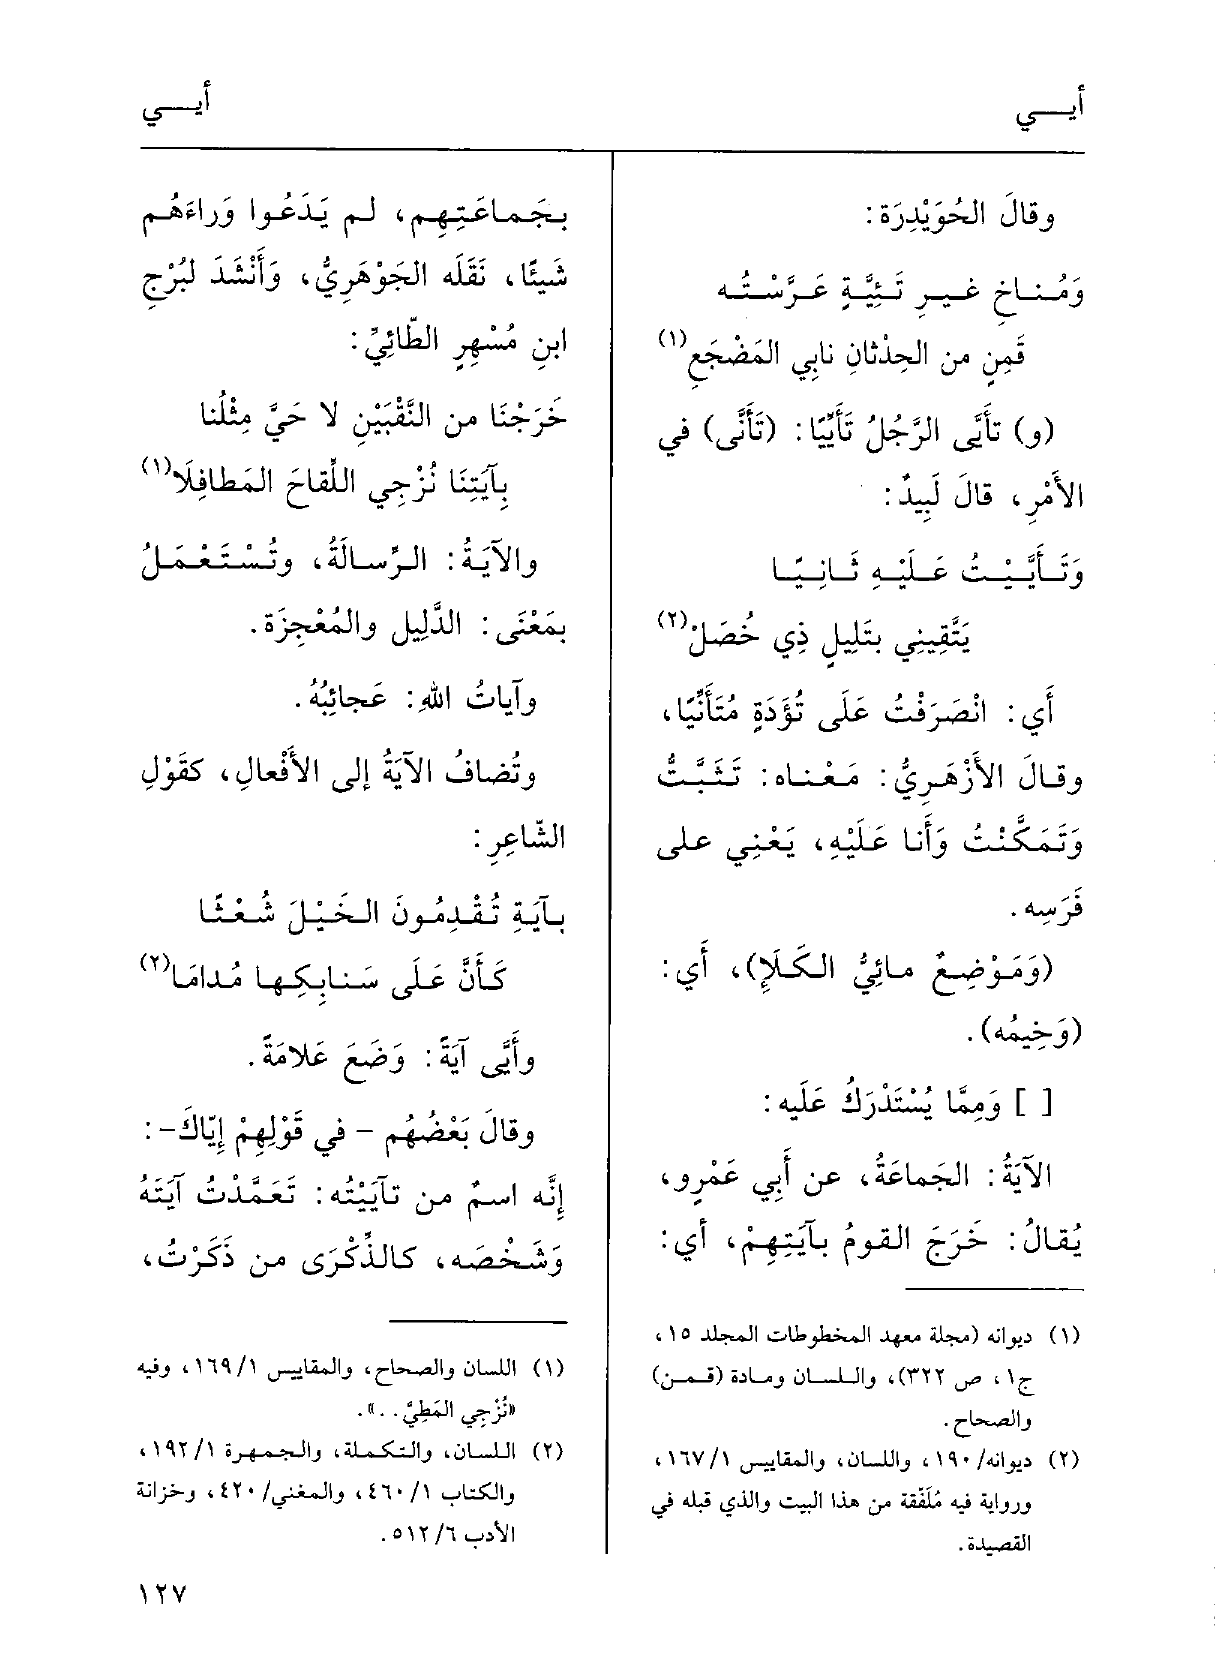 أيـي
أيـي
وقالَ الحُوَيْدِرَة:
وَمُناخِ غيرِ تَئِيَّةٍ عَرَّسْتُه
قَمِنٍ من الحِدْثانِ نابِي المَضْجَعِ(١)
(و) تأَيَّى الرَّجُلُ تَأَيِّيًا: (تَأَنَّى) في
الأَمْرِ، قالَ لَبِيدٌ:
وَتَأَيَّيْتُ عَلَيْهِ ثَانِيًا
يَتَّقِينِي بتَلِيلٍ ذِي خُصَلْ(٢)
أَي: انْصَرَفْتُ عَلَى تُؤَدَةٍ مُتَأَنِّيًا،
وقالَ الأَزْهَرِيُّ: مَعْناه: تَثَبَّتُّ
وَتَمَكَّنْتُ وَأَنا عَلَيْهِ، يَعْنِي على
فَرَسِه.
(وَمَوْضِعٌ مائِيُّ الكَلَإِ)، أَي:
(وَخِيمُه).
[ ] وَمِمَّا يُسْتَدْرَكُ عَلَيه:
الآيَةُ: الجَماعَةُ، عن أَبِي عَمْرٍو،
يُقالُ: خَرَجَ القومُ بآيَتِهِمْ، أي:
(١) ديوانه (مجلة معهد المخطوطات المجلد ١٥،
ج١، ص ٣٢٢)، واللسان ومادة (قمن)
والصحاح.
(٢) ديوانه/١٩٠، واللسان، والمقاييس ١٦٧/١،
ورواية فيه مُلَفّقة من هذا البيت والذي قبله في
القصيدة.
بجَماعَتِهِم، لم يَدَعُوا وَراءَهُم
شَيئًا، نَقَلَه الجَوْهَرِيُّ، وَأَنْشَدَ لبُرْجِ
ابنِ مُسْهِرٍ الطّائِيِّ:
خَرَجْنَا من النَّقْبَيْنِ لا حَيَّ مِثْلُنا
بِآيَتِنَا نُزْجِي اللِّقاحَ المَطافِلَا(١)
والآيَةُ: الرِّسالَةُ، وتُسْتَعْمَلُ
بمَعْنَى: الدَّلِيل والمُعْجِزَة.
وآياتُ اللهِ: عَجائِبُهُ.
وتُضافُ الآيَةُ إلى الأَفْعالِ، كقَوْلِ
الشّاعِرِ:
بآيَةِ تُقْدِمُونَ الخَيْلَ شُعْثًا
كَأَنَّ عَلَى سَنابِكِها مُدامَا(٢)
وأَيَّى آيَةً: وَضَعَ عَلامَةً.
وقالَ بَعْضُهُم - في قَوْلِهِمْ إيّاكَ-:
إنَّه اسمٌ من تآيَيْتُه: تَعَمَّدْتُ آيَتَهُ
وَشَخْصَه، كالذِّكْرَى من ذَكَرْتُ،
(١) اللسان والصحاح، والمقاييس ١٦٩/١، وفيه
«نُزْجِي المَطِيَّ..».
(٢) اللسان، والتكملة، والجمهرة ١٩٢/١،
والكتاب ٤٦٠/١، والمغني/٤٢٠، وخزانة
الأدب ٥١٢/٦.
١٢٧